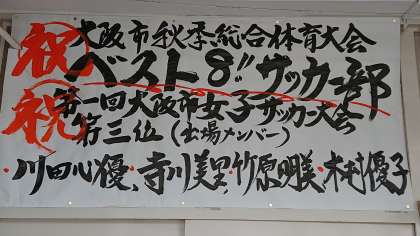 祝 大阪市秋季総合体育大会
ベスト8!! サッカー部
祝 第一回大阪市女子サッカー大会
第三位(出場メンバー)
・川田心優、寺川美里・竹原明美・木村優子